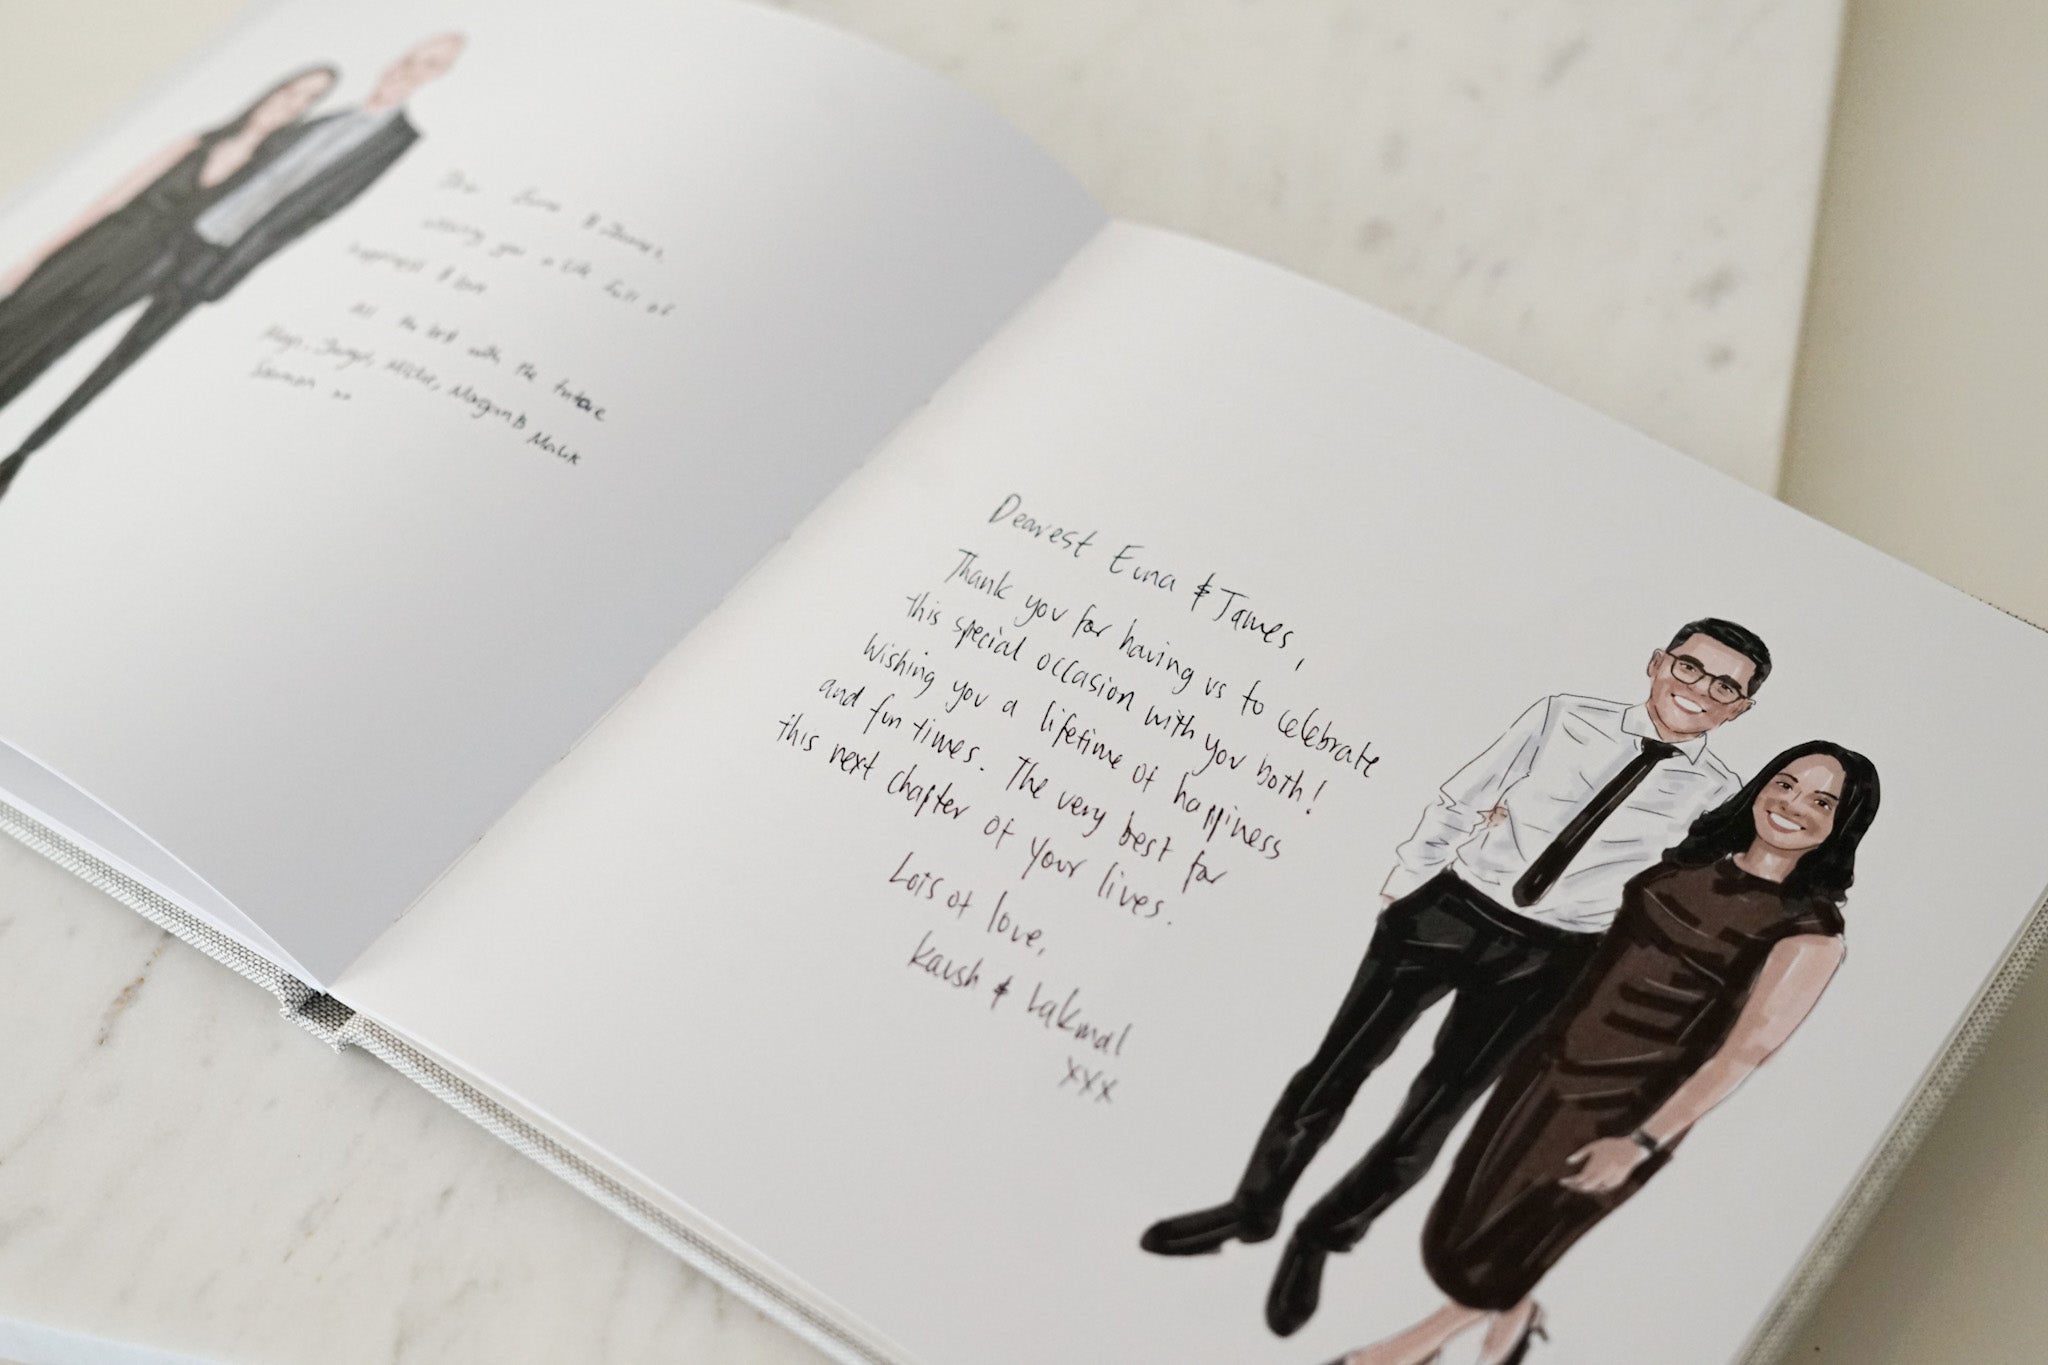 Dear Euna & James,
wishing you a life full of
happiness & love
All the best with the future
Mays, Jungs, Millie, Morgan & Malik
xx
Dearest Euna & James,
Thank you for having us to celebrate
this special occasion with you both!
Wishing you a lifetime of happiness
and fun times. The very best for
this next chapter of your lives.
Lots of love,
Kaush & Lakmal
xxx